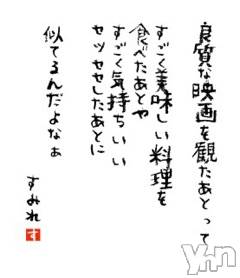 良質な映画を観たあとって
すごく美味しい料理を
食べたあとや
すごく気持ちいい
セッセセしたあとに
似てるんだよなぁ
すみれ
す